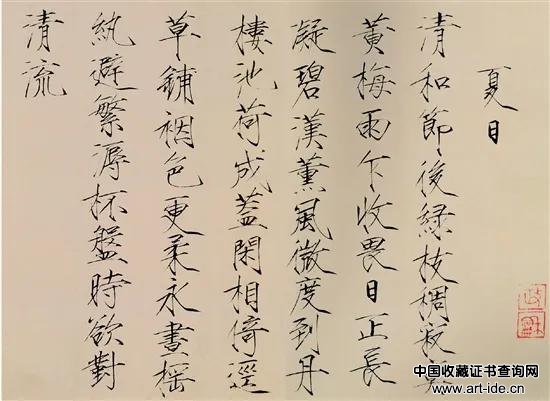 夏日
清和節後綠枝稠寂寞
黃梅雨乍收畏日正長
凝碧漢薰風微度到丹
樓池荷成蓋閑相倚逕
草鋪裀色更柔永晝搖
紈避繁溽杯盤時欲對
清流
政龢
中国收藏证书查询网
www.art-ide.cn